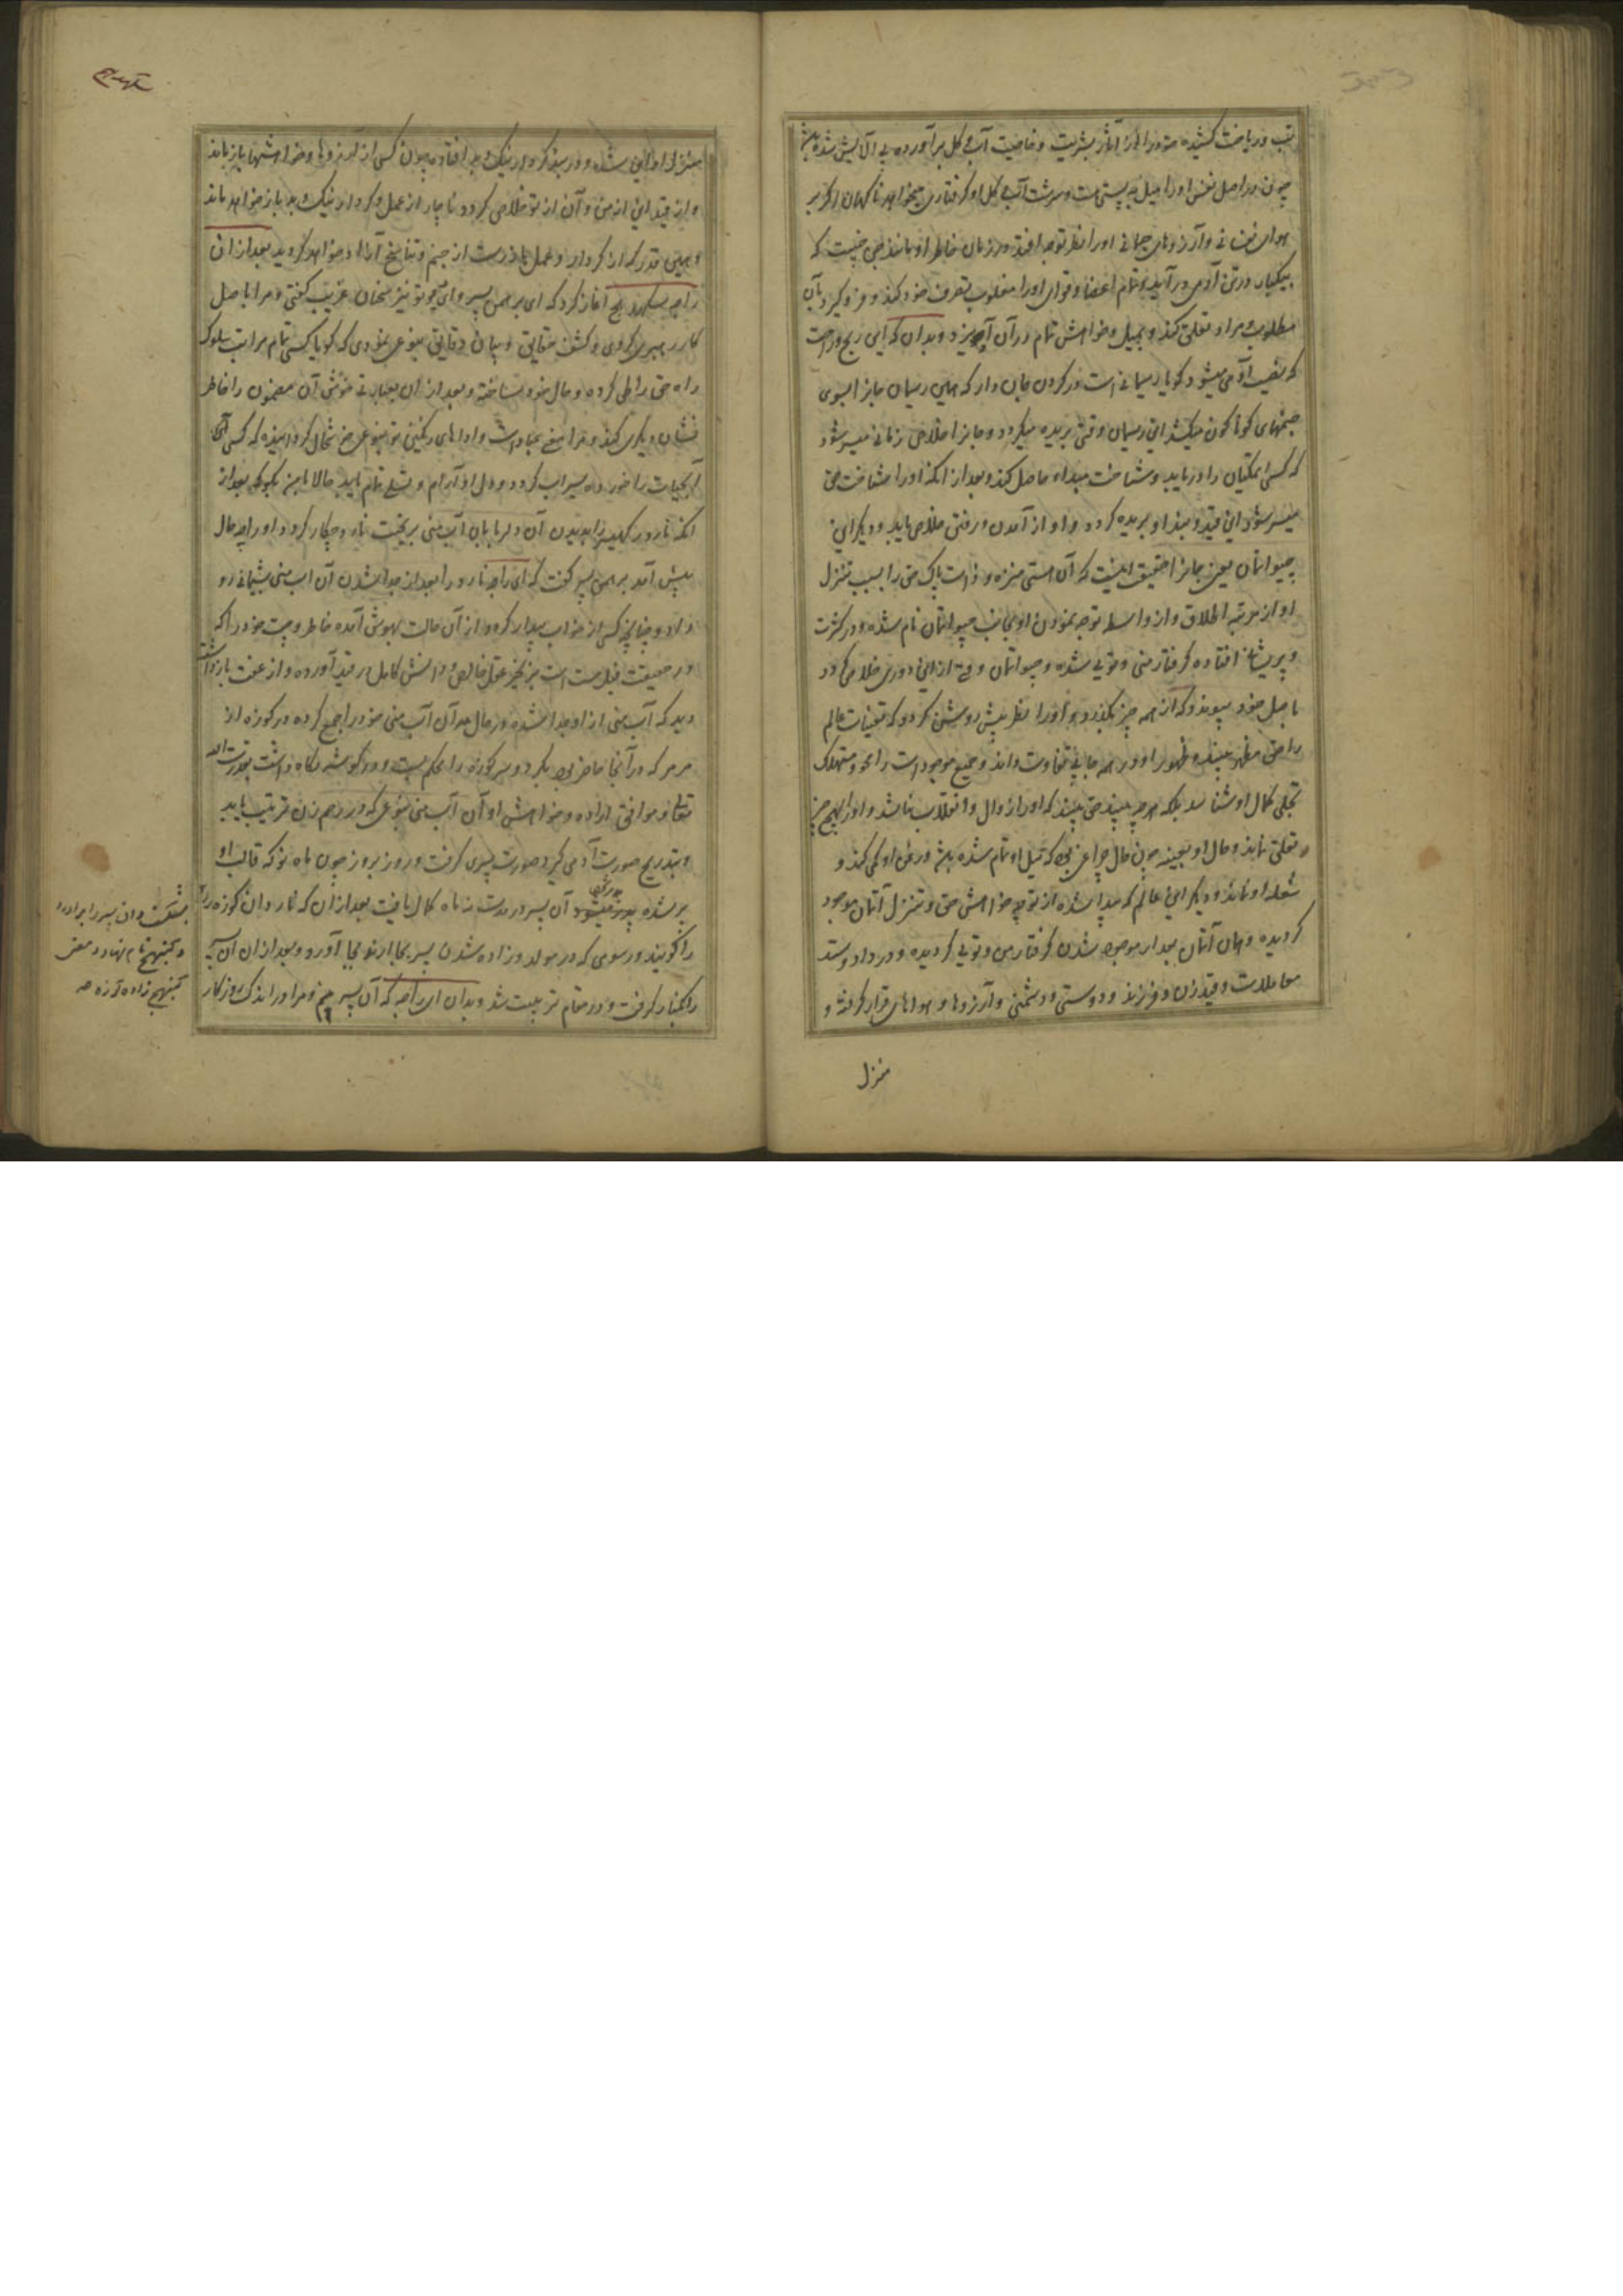 تب و ریاضت کشیده خود را از آثار بشریت و خاصیت آب و گل برآورده بی آلایش شده باشد
چون در اصل نفس او را میل به پستی است و سرشت آب و گل او گرفتاری میخواهد ناگهان اگر بر
هوای نفسانی و آرزوهای جسمانی او را نظر توجه افتد در زمان خاطر او مانند جنی خبیث که
بیکبار در تن آدمی در آید و تمام اعضا و قوای او را مغلوب تصرف خود کند و فرو گیرد بآن
مطلوب و مراد تعلق کند و بمیل و خواهش تمام در آن آویزد و بدان که این رنج و راحت
که نصیب آدمی میشود گویا ریسمانی است در گردن جان دار که همین ریسمان جان را بسوی
جسمهای گوناگون میکشد این ریسمان وقتی بریده میگردد و جان را خلاصی زمانی میسر شود
که کسی ممکتیان را دریابد و شناخت مبداء حاصل کند و بعد از انکه او را شناخت حق
میسر شود این قید و بند او بریده گردد و او از آمدن و رفتن خلاص یابد و دیگر این
جیواتمان یعنی جان را حقیقت اینست که آن هستی منزه و ذات پاک حق را بسبب تنزل
او از مرتبه اطلاق و از واسطه توجه نمودن او بجانب جیواتمان نام شده و در کثرت
و پریشانی افتاده گرفتار منی و تویی شده و جیواتمان وقتی از این دوری خلاص گردد
باصل خود پیوندد که از همه چیز بگذرد و او را نظر پیش روشن گردد که تعینات عالم
را حق مظهر بیند و ظهور او در همه جا بی تفاوت داند و جمیع موجودات را محو و مستهلک
تجلی کمال او شناسد بلکه هر چه بیند حق بیند که او را زوال و انقلاب نباشد و او را بهیچ چیز
تعلق نماند و حال او بعینه چون حال چراغی بود که تیل او تمام شده باشد و روغن او کمی کند و
شعله او نماند و دیگر این عالم که پیدا شده از توجه خواهش حق و تنزل آتمان موجود
گردیده و همان آتمان بعد از موجود شدن گرفتار من و تویی گردیده و در داد و ستد
معاملات و قید زن و فرزند و دوستی و دشمنی و آرزوها و هواهای قرار گرفته و
منزل
منزل او این شده و در بند کردار نیک و بد افتاده چون کسی از آرزوها و خواهشها باز ماند
و از قید این از من و آن از تو خلاص گردد ناچار از عمل و کردار نیک و بد باز خواهد ماند
و همین قدر که از کردار و عمل باز رست از جنم و تناسخ آزاد خواهد گردید بعد از ان
راجه سکهردهج آغاز کرد که ای برهمن پسر و ای تو نیز سخنان غریب گفتی و مرا باصل
کار رهبری کردی و کشف حقایق و بیان دقایق بنوعی نمودی که گویا کسی تمام مراتب سلوک
راه حق را طی کرده و حال خود ساخته و بعد از ان بعبارتی خوش آن مضمون را خاطر
نشان دیگری کند و مرا سخن عبادات و اداهای رنگین تو بنوعی خوشحال گردانیده که کسی آنجا
آبحیات را خورده سیراب گردد و دل او آرام و تسلی تمام یابد حالا با من بگو که بعد از
انکه نارد رکهیسر را بدیدن آن دلربایان آب منی بریخت نارد چکار کرد و او را چه حال
پیش آمد برهمن پسر گفت که ای راجه نارد را بعد از جدا شدن آن آب منی پشیمانی رو
داد و چنانچه کسی از خواب بیدار گردد از آن حالت بهوش آمده خاطر وحشت خود را که
در حقیقت فیل مست است بزنجیر عقل خالص و دانش کامل در قید آورده و از عفت باز داشت
دید که آب منی از او جدا شده در حال همه آن آب منی خود را جمع کرده در کوزه از
مرمر که در آنجا حاضر بود بکرد و سر کوزه را محکم بست و در گوشه نگاه داشت بقدرت الله
تعالی و موافق اراده و خواهش او آن آب منی بنوعی که در رحم زن تربیت یابد
و بتدریج صورت آدمی گیرد صورت پسری گرفت و روز بروز چون ماه نو که قالب او
پر شده بدر میشود آن پسر در مدت نه ماه کمال یافت بعد از ان که نارد آن کوزه را
بشکست و ان پسر را برآورد
و کنبهج نام نهاد و معنی
کنبهج زاده کوزه
را گویند و رسومی که در مولد و زاده شدن پسر بجا آرند بجا آورد و بعد از ان آن پسر
را کنار گرفت و در مقام تربیت شد و بدان ای راجه که آن پسر منم و مرا در اندک روزگار